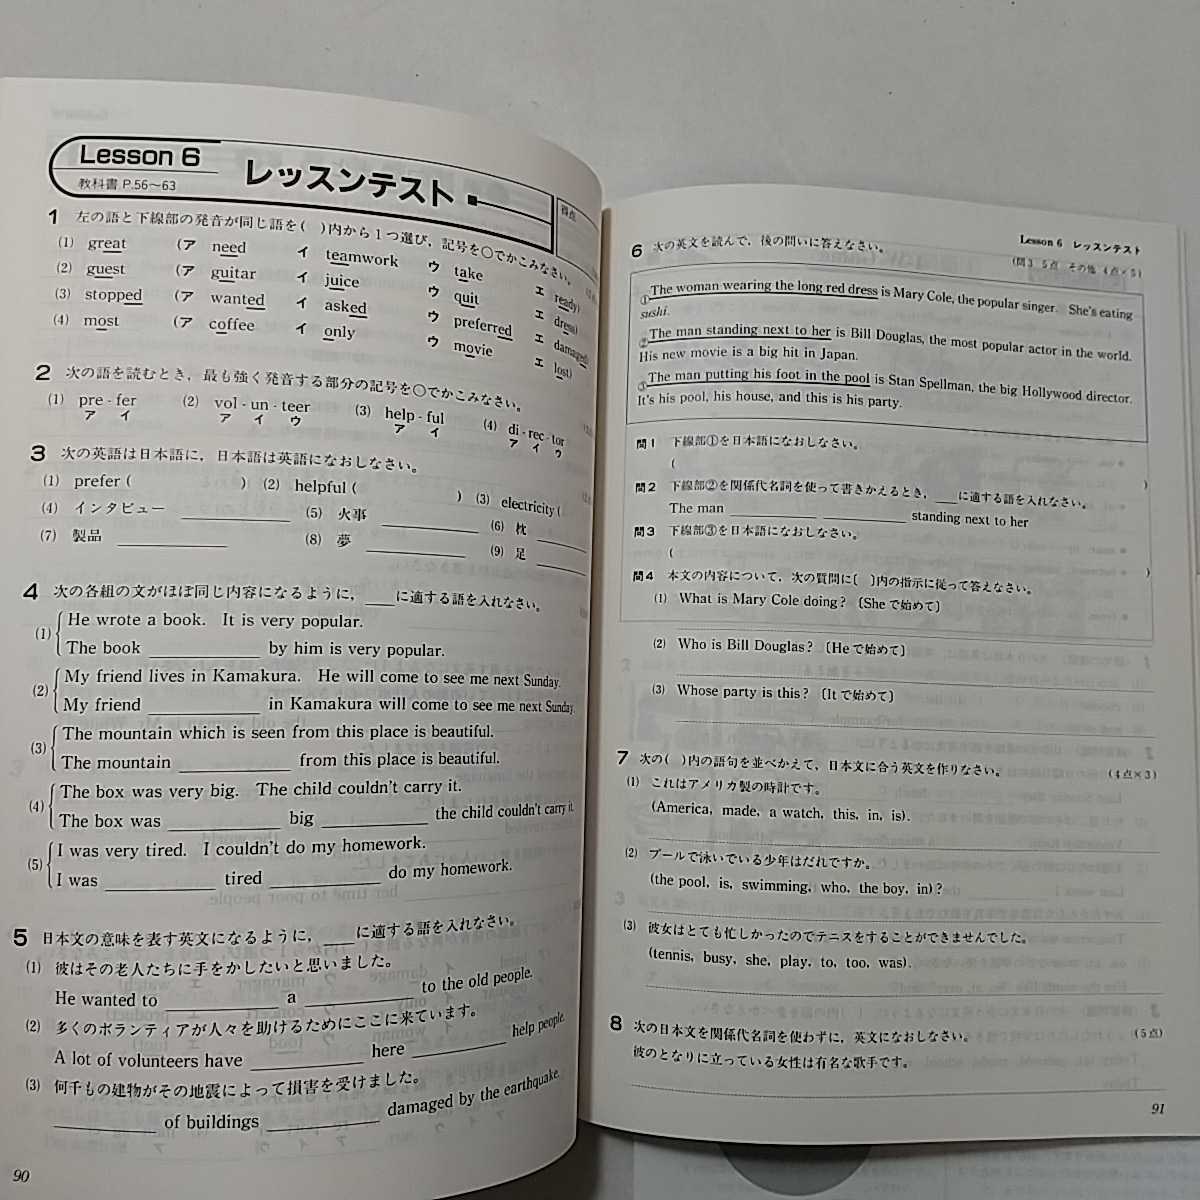 Lesson 6
教科書 P.56〜63
レッスンテスト
得点
1 左の語と下線部の発音が同じ語を( )内から1つ選び，記号を○でかこみなさい。
(1) great (ア need イ teamwork ウ take エ ready)
(2) guest (ア guitar イ juice ウ quit エ dress)
(3) stopped (ア wanted イ asked ウ preferred エ damaged)
(4) most (ア coffee イ only ウ movie エ lost)
2 次の語を読むとき，最も強く発音する部分の記号を○でかこみなさい。
(1) pre - fer (2) vol - un - teer (3) help - ful (4) di - rec - tor
ア イ ア イ ウ ア イ ア イ ウ
3 次の英語は日本語に，日本語は英語になおしなさい。
(1) prefer ( ) (2) helpful ( ) (3) electricity (
(4) インタビュー (5) 火事 (6) 枕
(7) 製品 (8) 夢 (9) 足
4 次の各組の文がほぼ同じ内容になるように，____に適する語を入れなさい。
(1) He wrote a book. It is very popular.
The book ____ by him is very popular.
(2) My friend lives in Kamakura. He will come to see me next Sunday.
My friend ____ in Kamakura will come to see me next Sunday.
(3) The mountain which is seen from this place is beautiful.
The mountain ____ from this place is beautiful.
(4) The box was very big. The child couldn't carry it.
The box was ____ big ____ the child couldn't carry it.
(5) I was very tired. I couldn't do my homework.
I was ____ tired ____ do my homework.
5 日本文の意味を表す英文になるように，____に適する語を入れなさい。
(1) 彼はその老人たちに手をかしたいと思いました。
He wanted to ____ a ____ to the old people.
(2) 多くのボランティアが人々を助けるためにここに来ています。
A lot of volunteers have ____ here ____ help people.
(3) 何千もの建物がその地震によって損害を受けました。
____ of buildings ____ damaged by the earthquake.
90
Lesson 6 レッスンテスト
6 次の英文を読んで，後の問いに答えなさい。
(問3 5点 その他 4点×5)
①The woman wearing the long red dress is Mary Cole, the popular singer. She's eating
sushi.
②The man standing next to her is Bill Douglas, the most popular actor in the world.
His new movie is a big hit in Japan.
③The man putting his foot in the pool is Stan Spellman, the big Hollywood director.
It's his pool, his house, and this is his party.
問1 下線部①を日本語になおしなさい。
( )
問2 下線部②を関係代名詞を使って書きかえるとき，____に適する語を入れなさい。
The man ____ ____ standing next to her
問3 下線部③を日本語になおしなさい。
( )
問4 本文の内容について，次の質問に〔 〕内の指示に従って答えなさい。
(1) What is Mary Cole doing? 〔Sheで始めて〕
(2) Who is Bill Douglas? 〔Heで始めて〕
(3) Whose party is this? 〔Itで始めて〕
7 次の( )内の語句を並べかえて，日本文に合う英文を作りなさい。
(4点×3)
(1) これはアメリカ製の時計です。
(America, made, a watch, this, in, is).
(2) プールで泳いでいる少年はだれですか。
(the pool, is, swimming, who, the boy, in)?
(3) 彼女はとても忙しかったのでテニスをすることができませんでした。
(tennis, busy, she, play, to, too, was).
8 次の日本文を関係代名詞を使わずに，英文になおしなさい。
(5点)
彼のとなりに立っている女性は有名な歌手です。
91